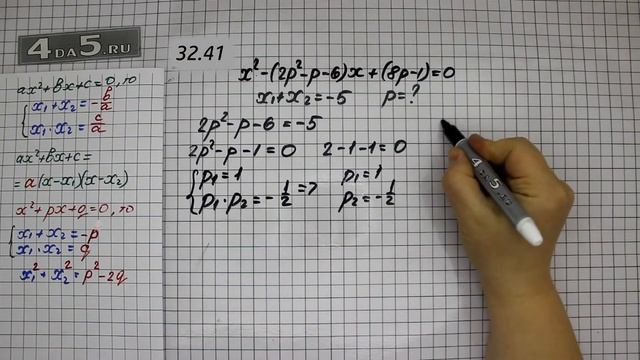 4DA5.RU
ax²+bx+c=0, то
{x₁+x₂=-b/a
x₁·x₂=c/a
ax²+bx+c=
=a(x-x₁)(x-x₂)
x²+px+q=0, то
{x₁+x₂=-p
x₁·x₂=q
x₁²+x₂²=p²-2q
32.41
x²-(2p²-p-6)x+(8p-1)=0
x₁+x₂=-5 p=?
2p²-p-6=-5
2p²-p-1=0 2-1-1=0
{p₁=1 p₁=1
p₁·p₂=-1/2 => p₂=-1/2
4DA5.RU